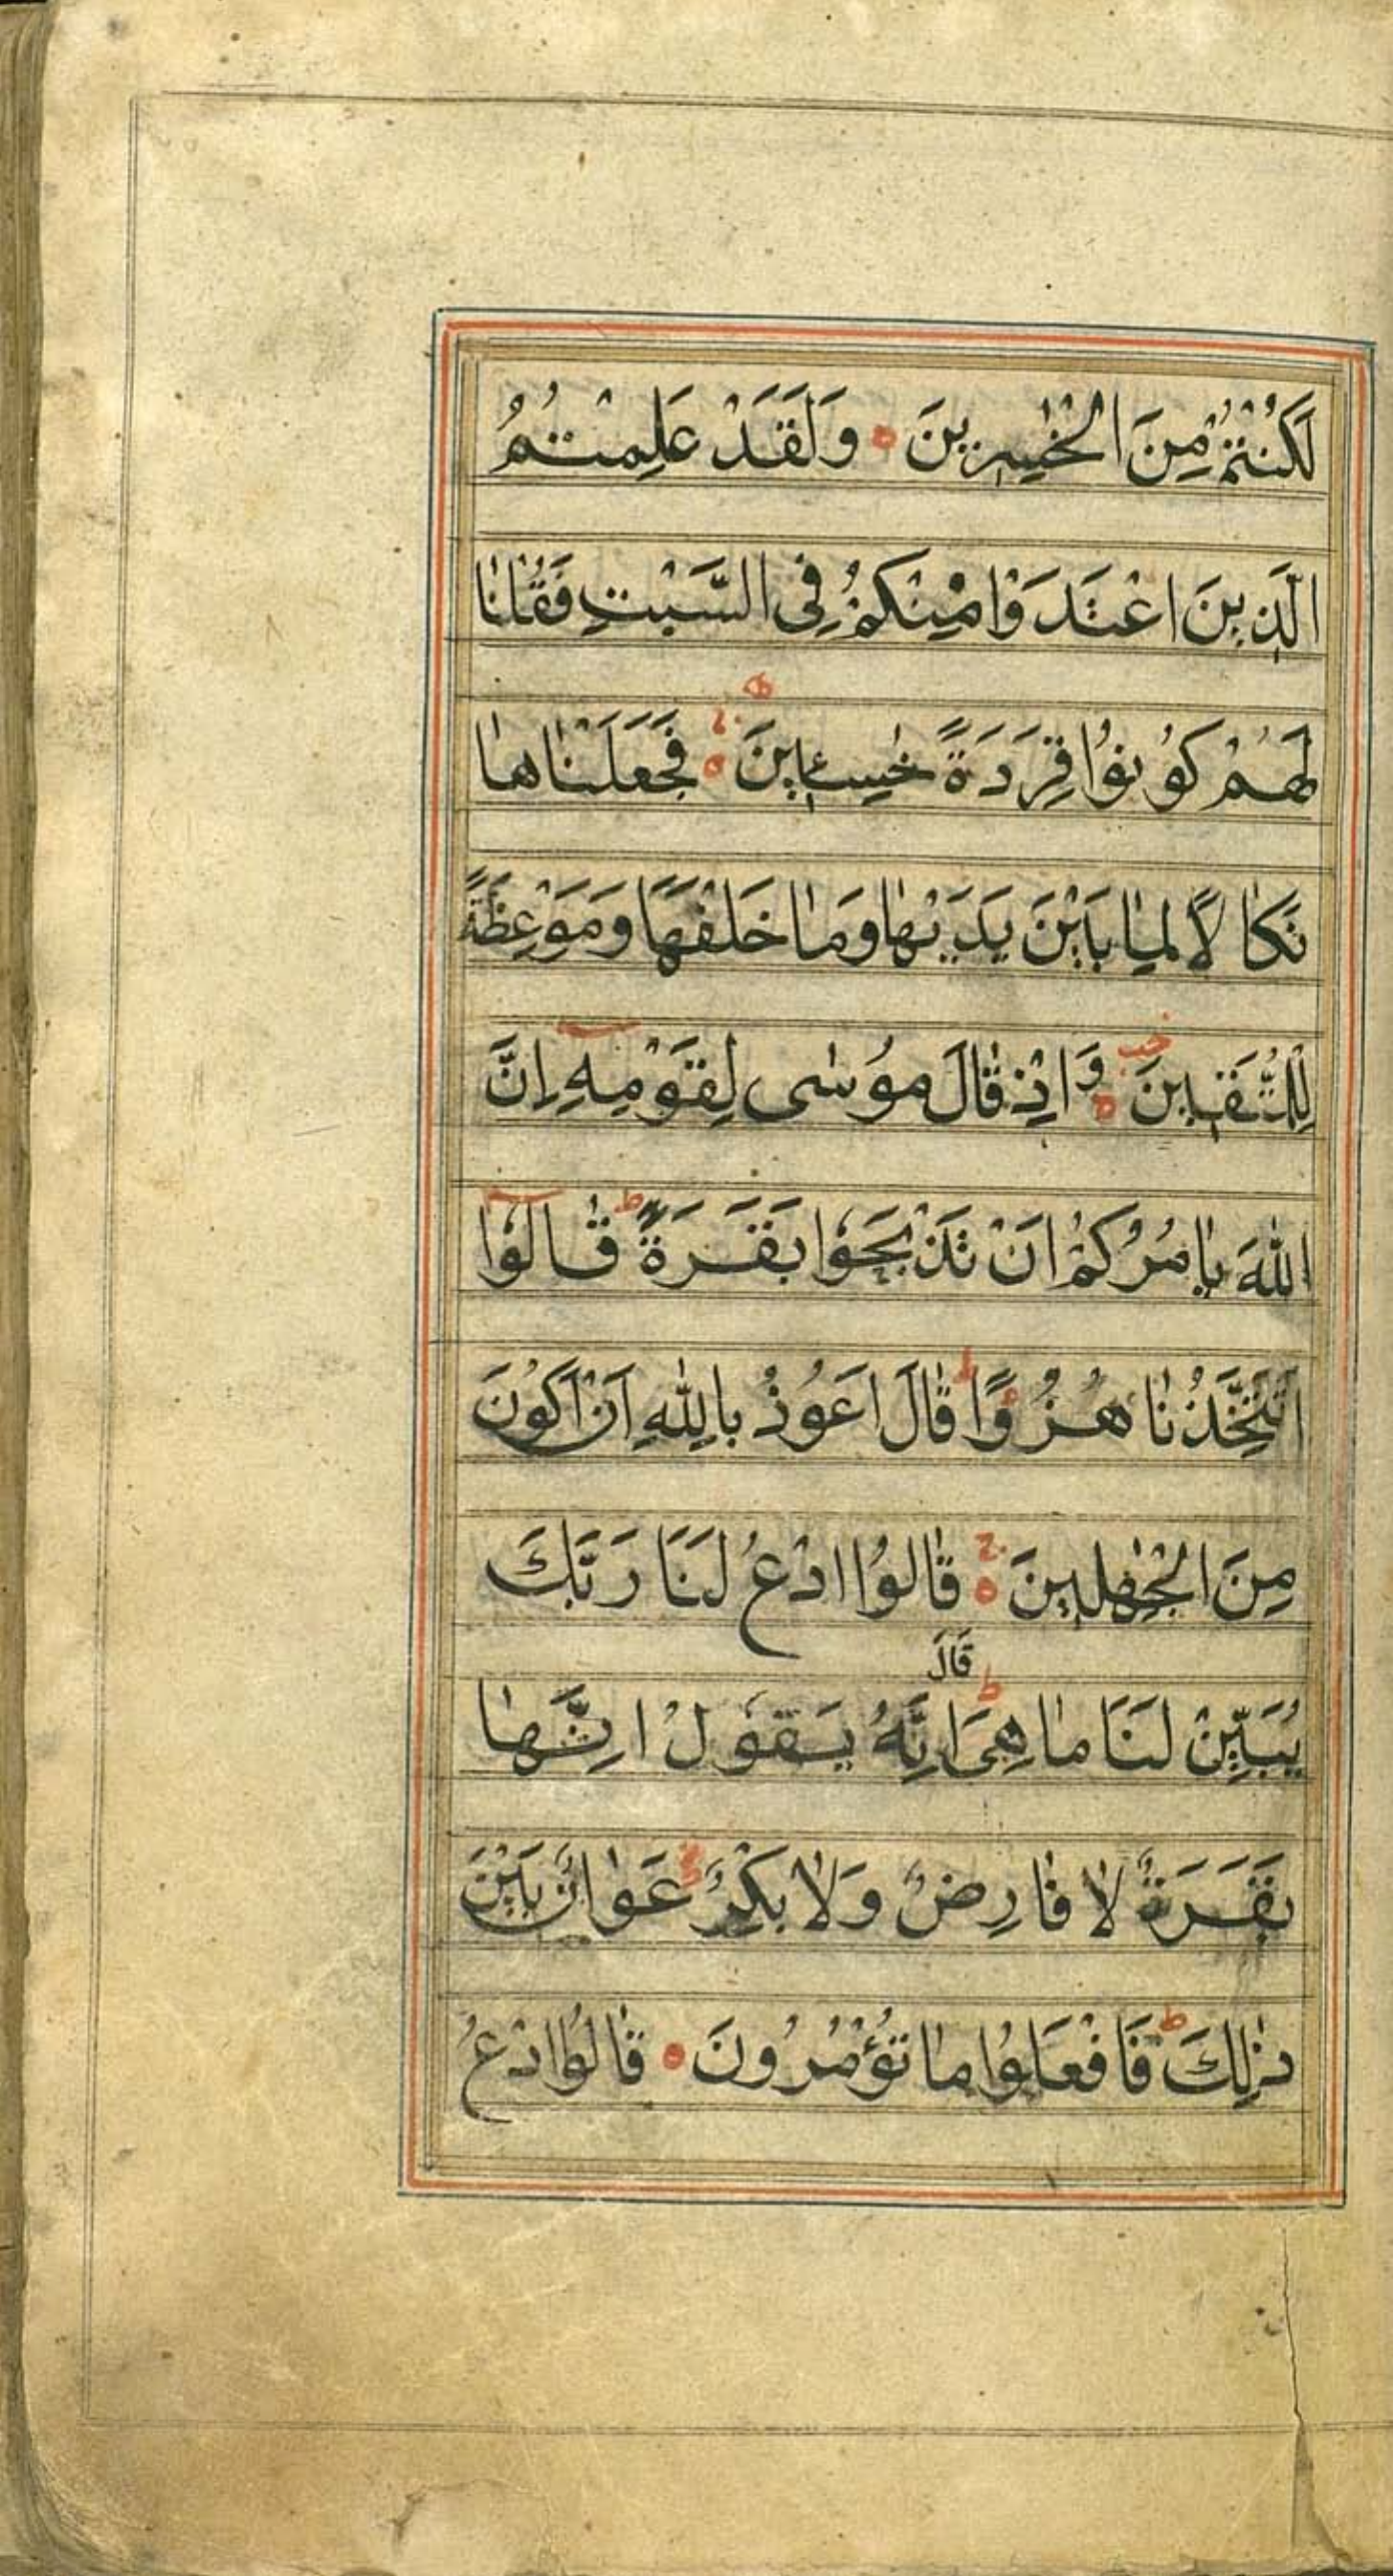 لَكُنْتُمْ مِنَ الْخٰسِرِينَ ۝ وَلَقَدْ عَلِمْتُمُ
الَّذِينَ اعْتَدَوْا مِنْكُمْ فِى السَّبْتِ فَقُلْنَا
لَهُمْ كُونُوا قِرَدَةً خٰسِـِٕينَ ۝ فَجَعَلْنَاهَا
نَكَالًا لِمَا بَيْنَ يَدَيْهَا وَمَا خَلْفَهَا وَمَوْعِظَةً
لِلْمُتَّقِينَ ۝ وَاِذْ قَالَ مُوسٰى لِقَوْمِهِ اِنَّ
اللّٰهَ يَاْمُرُكُمْ اَنْ تَذْبَحُوا بَقَرَةً ط قَالُوا
اَتَتَّخِذُنَا هُزُوًا ط قَالَ اَعُوذُ بِاللّٰهِ اَنْ اَكُونَ
مِنَ الْجٰهِلِينَ ۝ قَالُوا ادْعُ لَنَا رَبَّكَ
قَالَ
يُبَيِّنْ لَنَا مَا هِىَ ط اِنَّهُ يَقُولُ اِنَّهَا
بَقَرَةٌ لَا فَارِضٌ وَلَا بِكْرٌ عَوَانٌ بَيْنَ
ذٰلِكَ ط فَافْعَلُوا مَا تُؤْمَرُونَ ۝ قَالُوا ادْعُ